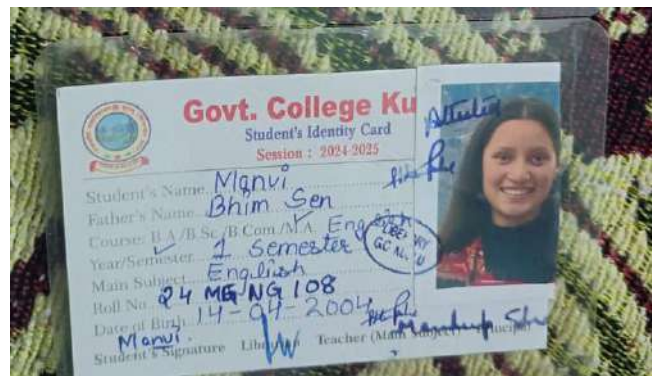 Govt. College Ku
Student's Identity Card
Session : 2024-2025
Attested
Student's Name Manvi
Father's Name Bhim Sen
Course: B.A/B.Sc/B.Com/M.A. Eng
Year/Semester 1 Semester
Main Subject English
Roll No. 24 MENG 108
Date of Birth 14-04-2004
Manvi.
Student's Signature Librarian Teacher (Main Subject) Principal